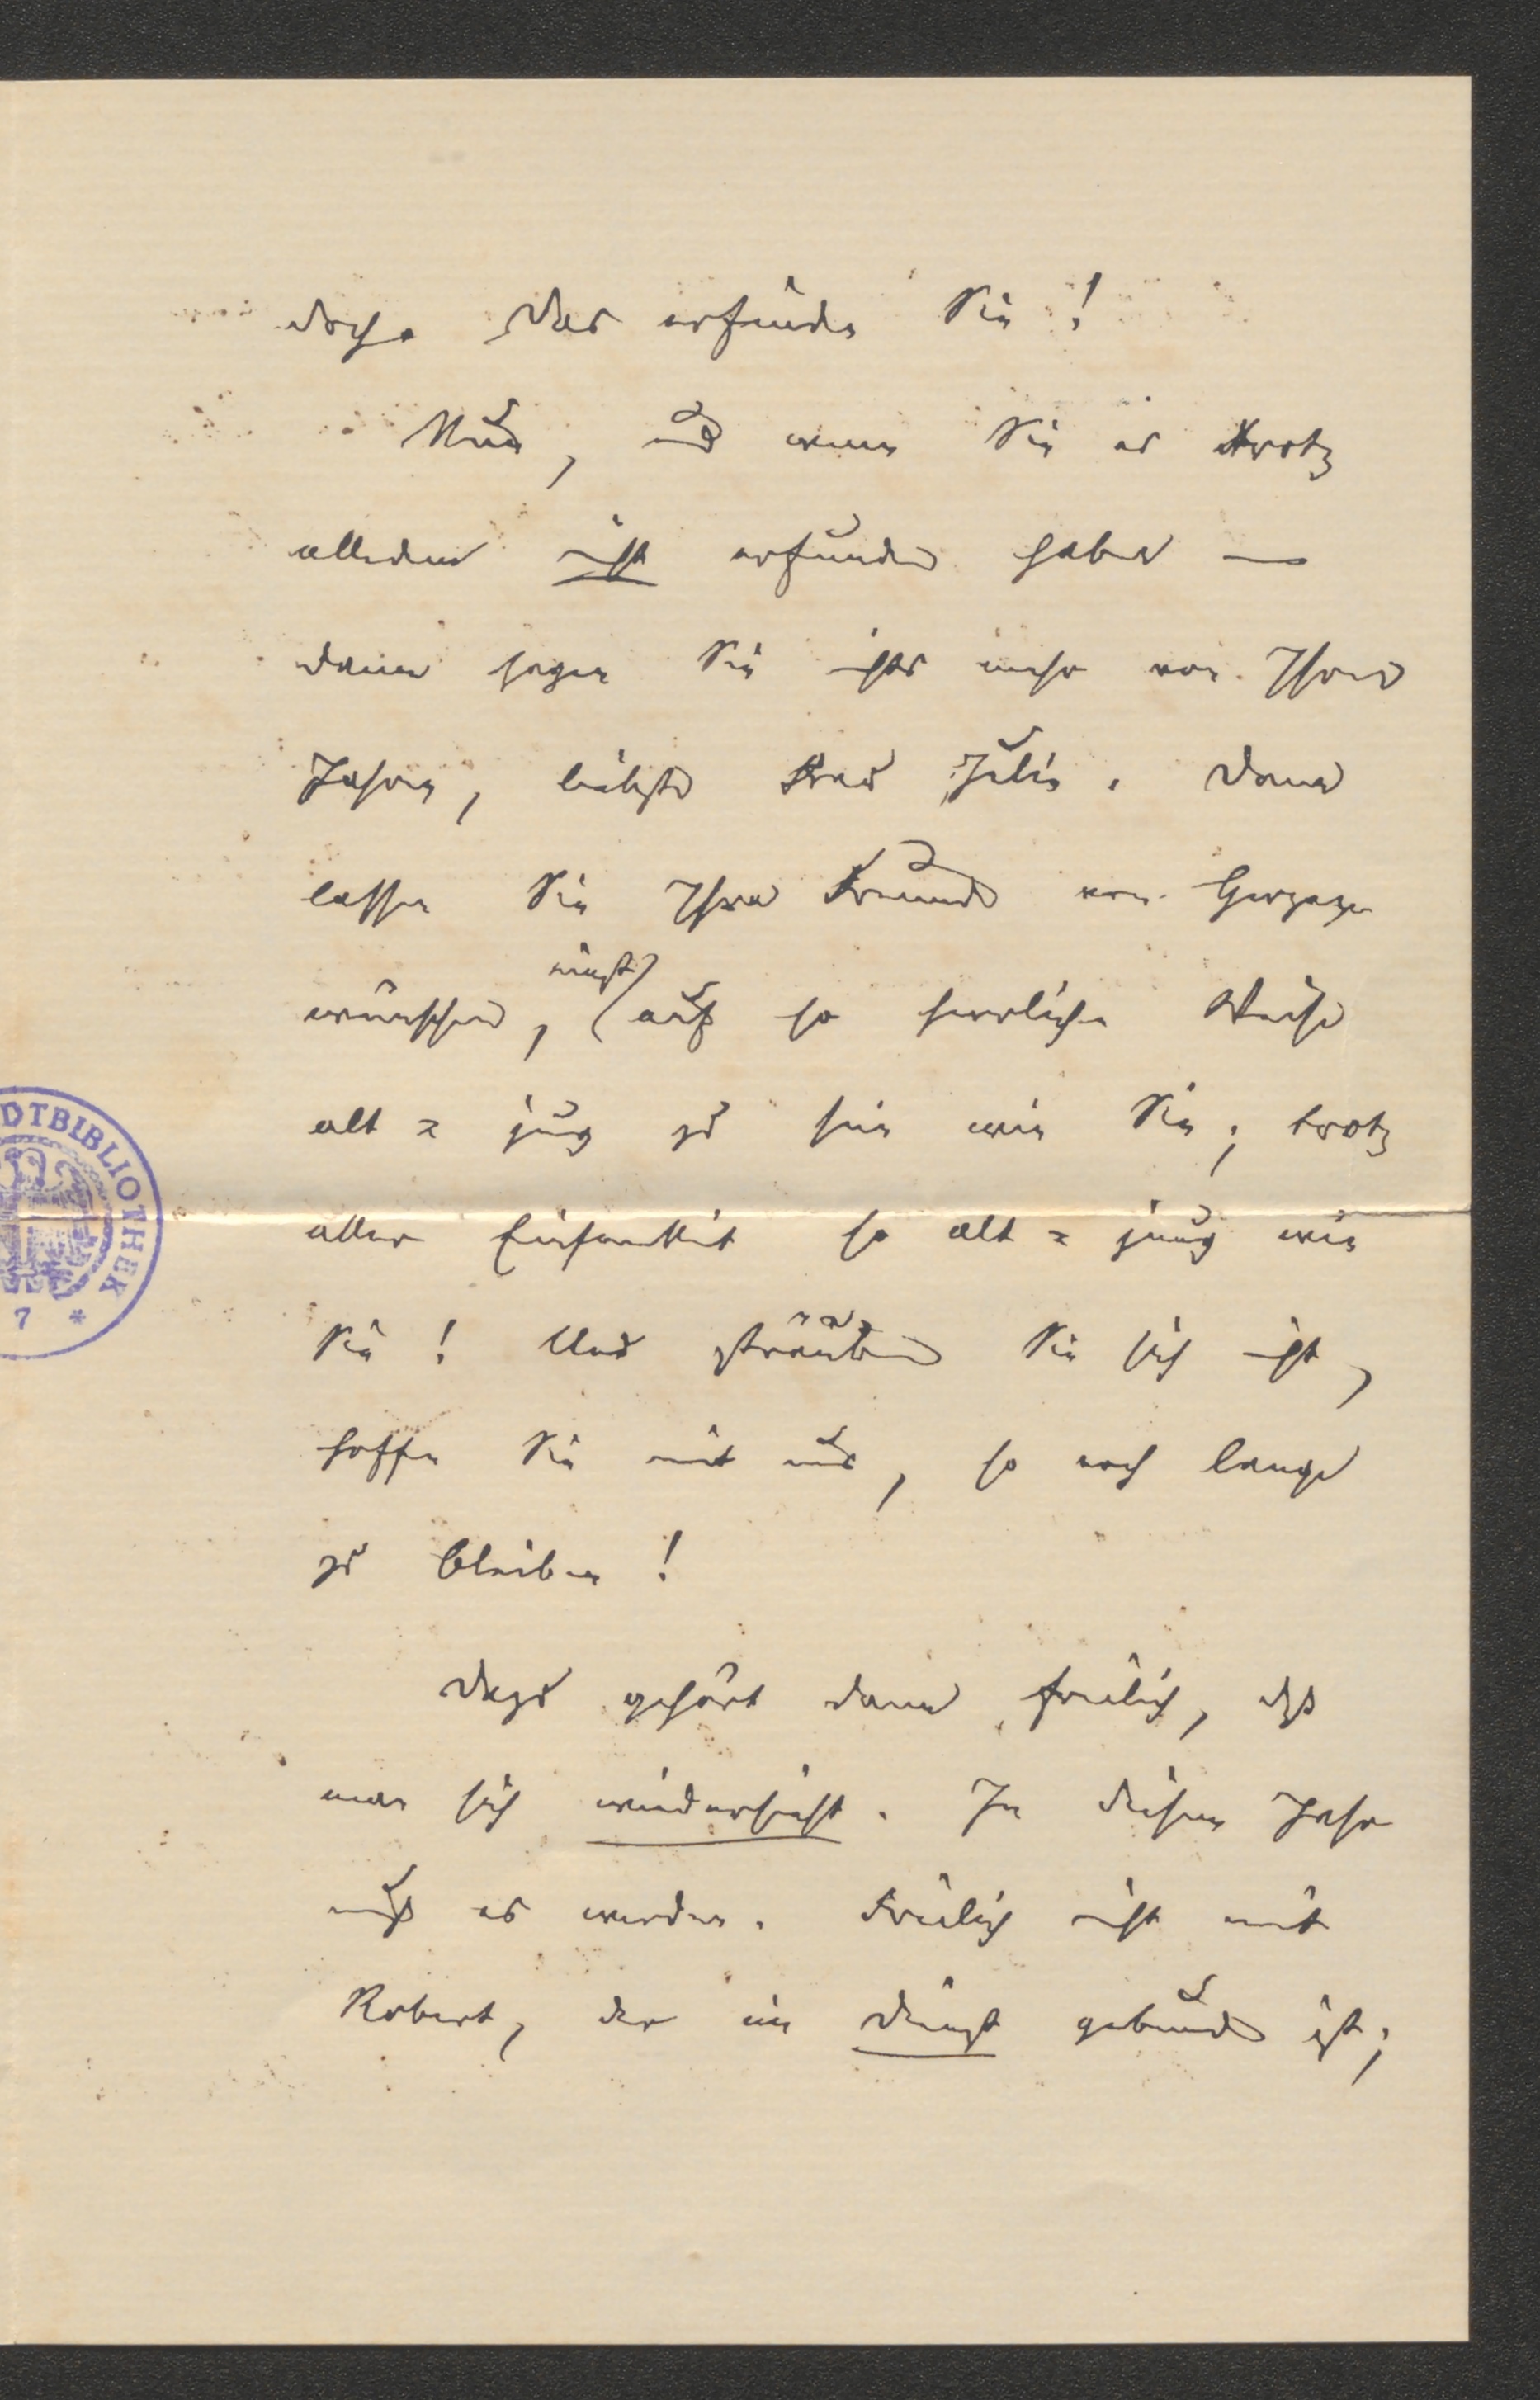 doch. Das erfinden Sie!
Nun, und wenn Sie es trotz
alledem nicht erfunden haben —
dann sagen Sie nichts mehr von Ihren
Jahren, liebste Frau Julie. Dann
lassen Sie Ihre Freunde von Herzen
wünschen, einst auf so herrliche Weise
alt u jung zu sein wie Sie; trotz
aller Einsamkeit so alt u jung wie
Sie! Und sträuben Sie sich nicht,
hoffen Sie mit uns, so noch lange
zu bleiben!
Dazu gehört dann freilich, daß
man sich wiedersieht. In diesem Jahr
muß es werden. Freilich nicht mit
Robert, der im Dienst gebunden ist;
DTBIBLIOTHEK
7 *